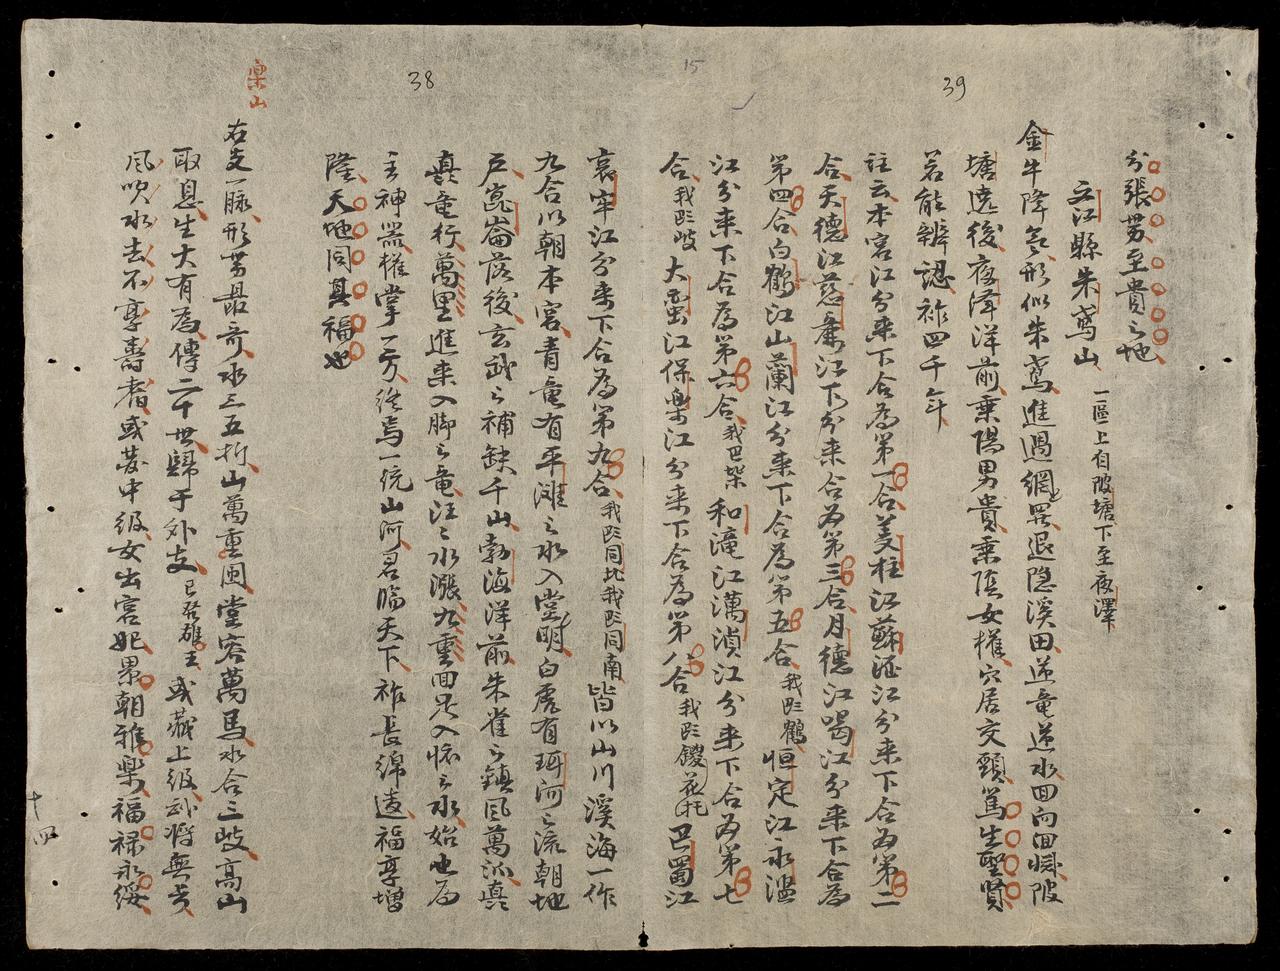 39
分張男至貴之地
文江縣朱鳶山 一區上自陂塘下至夜澤
金牛降氣形似朱鳶進過網羅退隐溪田逆龍逆水回向洄
陂塘遶後夜澤洋前乗陽男貴乗陰女權穴居交頸篤生聖賢
若能辨認祚四千年
註云本宮江分来下合為第一合美柱江蘇
江分来下合為第二
合天德江慈廉江下分来合为第三合月德江喝江分来下合為
第四合白鶴江山蘭江分来下合為第五合我民鶴恒定江永溫
江分来下合為第六合我巴架和滝江滿湞江分来下合為第七
合我民岐大蛮江保樂江分来下合為第八合我民鑁花托巴蜀江
15
哀牢江分来下合為第九合我民同比我民同南皆以山川溪海一作
九合以朝本宮青龍有平灘之水入堂明白虎有珥河之流朝地
戸崑崙落後玄武之補缺千山勃海洋前朱雀之鎮風萬派真
真龍行萬里進来入脚之龍汪之水漲九重面足入懐之水始也為
主神器權掌一方終焉一統山河君臨天下祚長綿遠福享增
隆天地同其福也
38
樂山
右支一脉形势最奇水三五折山萬重閫堂容萬馬水合三岐高山
取息生大有為傳二十世歸于外支已発雄王或藏上級武将無号
風吹水去不享壽耆或葬中級女出宮妃累朝雅樂福禄永綏
十四